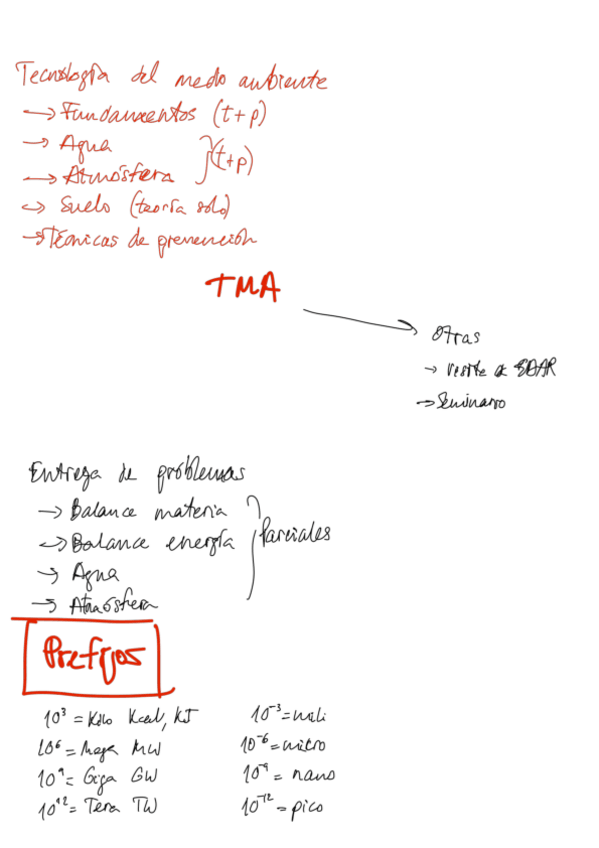 Tecnología del medio ambiente
→ Fundamentos (t+p)
→ Agua
→ Atmósfera } (t+p)
→ Suelo (teoría solo)
→ Técnicas de prevención
TMA
Otras
→ visita a EDAR
→ Seminario
Entrega de problemas
→ Balance materia
→ Balance energía } Parciales
→ Agua
→ Atmósfera
Prefijos
10³ = Kilo Kcal, KJ
10⁶ = Mega MW
10⁹ = Giga GW
10¹² = Tera TW
10⁻³ = mili
10⁻⁶ = micro
10⁻⁹ = nano
10⁻¹² = pico